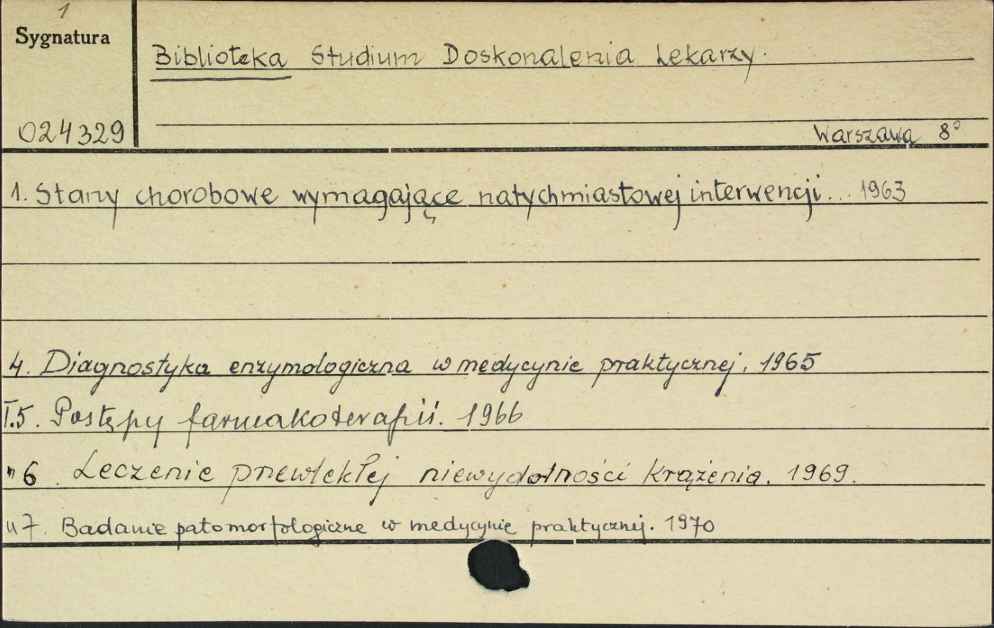 1
Sygnatura
Biblioteka Studium Doskonalenia Lekarzy.
024329
Warszawa 8°
1. Stany chorobowe wymagające natychmiastowej interwencji... 1963
4. Diagnostyka enzymologiczna w medycynie praktycznej. 1965
T.5. Postępy farmakoterapii. 1966
" 6. Leczenie przewlekłej niewydolności krążenia. 1969.
" 7. Badanie patomorfologiczne w medycynie praktycznej. 1970